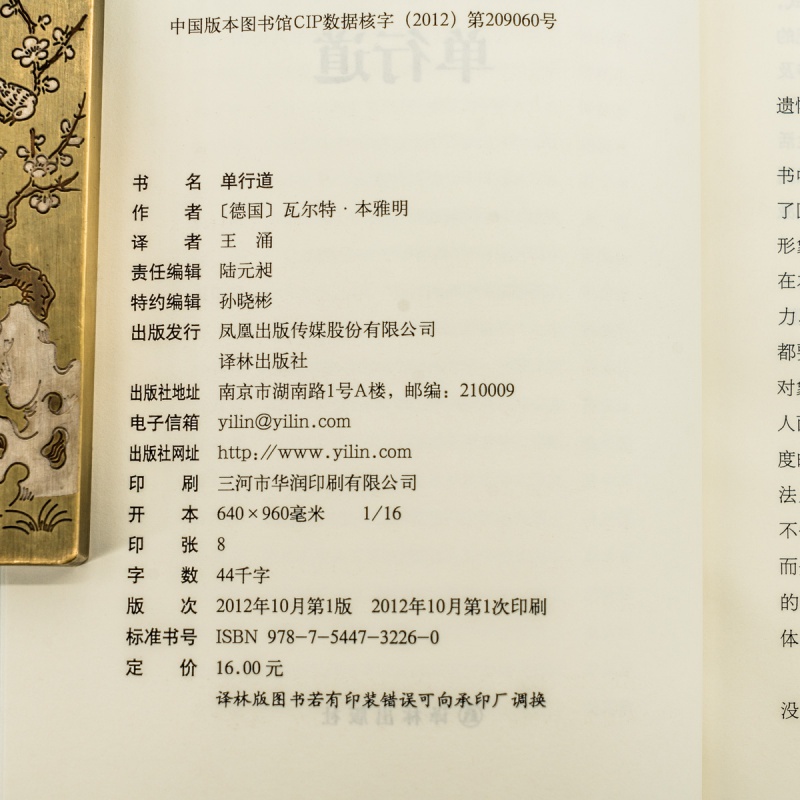 中国版本图书馆CIP数据核字（2012）第209060号
书 名 单行道
作 者 〔德国〕瓦尔特·本雅明
译 者 王 涌
责任编辑 陆元昶
特约编辑 孙晓彬
出版发行 凤凰出版传媒股份有限公司
译林出版社
出版社地址 南京市湖南路1号A楼，邮编：210009
电子信箱 yilin@yilin.com
出版社网址 http://www.yilin.com
印 刷 三河市华润印刷有限公司
开 本 640×960毫米 1/16
印 张 8
字 数 44千字
版 次 2012年10月第1版 2012年10月第1次印刷
标准书号 ISBN 978-7-5447-3226-0
定 价 16.00元
译林版图书若有印装错误可向承印厂调换
遗
书
了
形
在
力
都
对
人
度
法
不
而
的
体
没